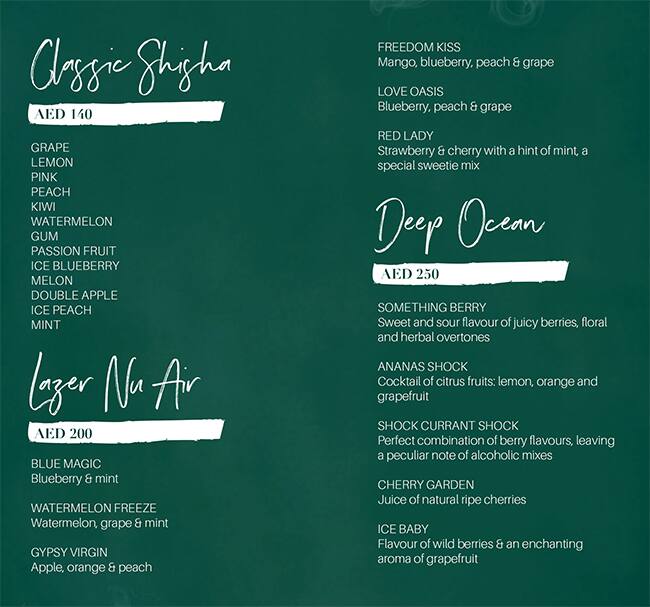 Classic Shisha
AED 140
GRAPE
LEMON
PINK
PEACH
KIWI
WATERMELON
GUM
PASSION FRUIT
ICE BLUEBERRY
MELON
DOUBLE APPLE
ICE PEACH
MINT
Lazer Nu Air
AED 200
BLUE MAGIC
Blueberry & mint
WATERMELON FREEZE
Watermelon, grape & mint
GYPSY VIRGIN
Apple, orange & peach
FREEDOM KISS
Mango, blueberry, peach & grape
LOVE OASIS
Blueberry, peach & grape
RED LADY
Strawberry & cherry with a hint of mint, a
special sweetie mix
Deep Ocean
AED 250
SOMETHING BERRY
Sweet and sour flavour of juicy berries, floral
and herbal overtones
ANANAS SHOCK
Cocktail of citrus fruits: lemon, orange and
grapefruit
SHOCK CURRANT SHOCK
Perfect combination of berry flavours, leaving
a peculiar note of alcoholic mixes
CHERRY GARDEN
Juice of natural ripe cherries
ICE BABY
Flavour of wild berries & an enchanting
aroma of grapefruit